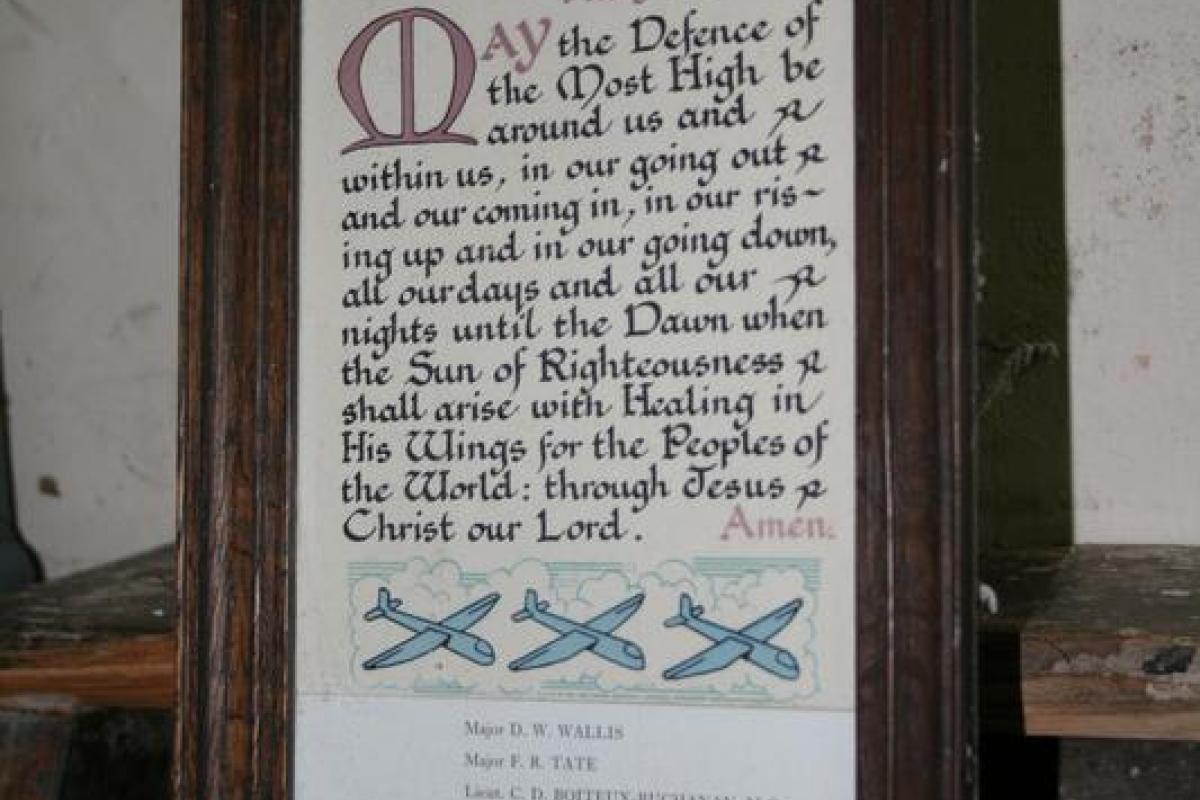 MAY the Defence of
the Most High be
around us and
within us, in our going out
and our coming in, in our ris~
ing up and in our going down,
all our days and all our
nights until the Dawn when
the Sun of Righteousness
shall arise with Healing in
His Wings for the Peoples of
the World: through Jesus
Christ our Lord. Amen.
Major D. W. WALLIS
Major F. R. TATE
Lieut. C. D. BOITEUX-BUCHANAN